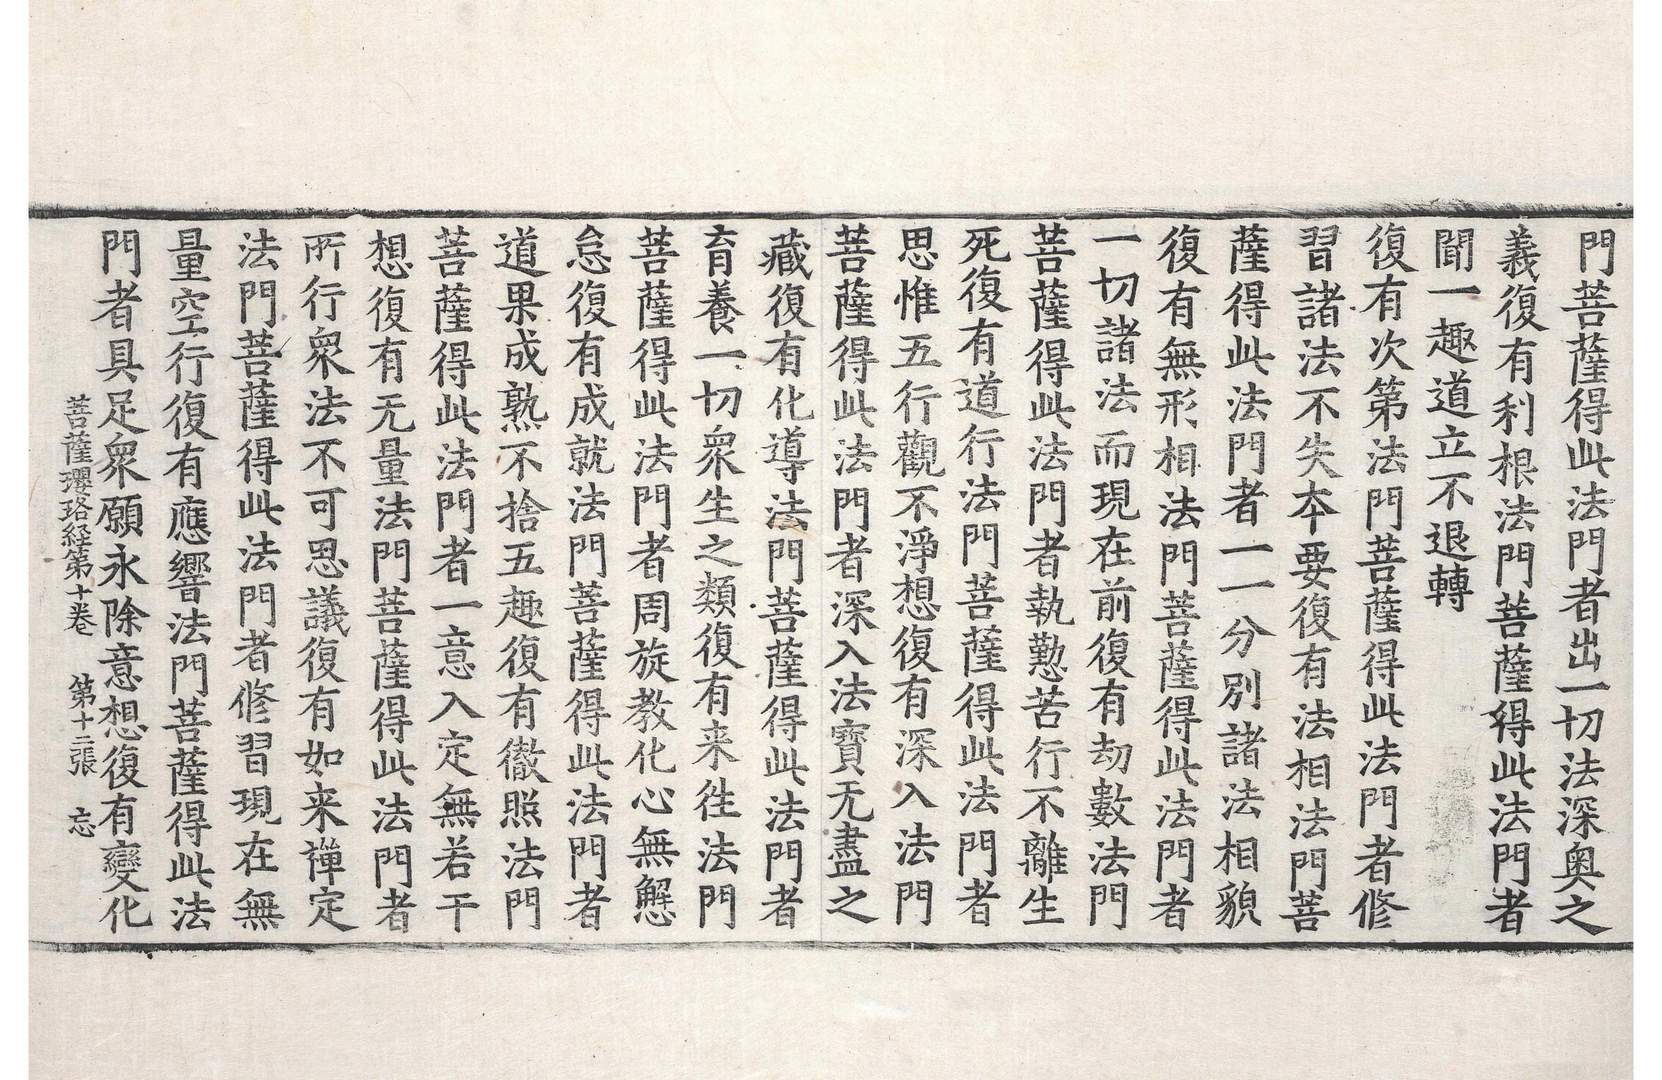 門菩薩得此法門者出一切法深奥之
義復有利根法門菩薩得此法門者
聞一趣道立不退轉
復有次第法門菩薩得此法門者修
習諸法不失本要復有法相法門菩
薩得此法門者一一分別諸法相貌
復有無形相法門菩薩得此法門者
一切諸法而現在前復有劫數法門
菩薩得此法門者執懃苦行不離生
死復有道行法門菩薩得此法門者
思惟五行觀不淨想復有深入法門
菩薩得此法門者深入法寶无盡之
藏復有化導法門菩薩得此法門者
育養一切衆生之類復有来徃法門
菩薩得此法門者周旋教化心無懈
怠復有成就法門菩薩得此法門者
道果成熟不捨五趣復有徹照法門
菩薩得此法門者一意入定無若干
想復有无量法門菩薩得此法門者
所行衆法不可思議復有如来禅定
法門菩薩得此法門者修習現在無
量空行復有應響法門菩薩得此法
門者具足衆願永除意想復有變化
菩薩瓔珞経第十卷 第十二張 忘